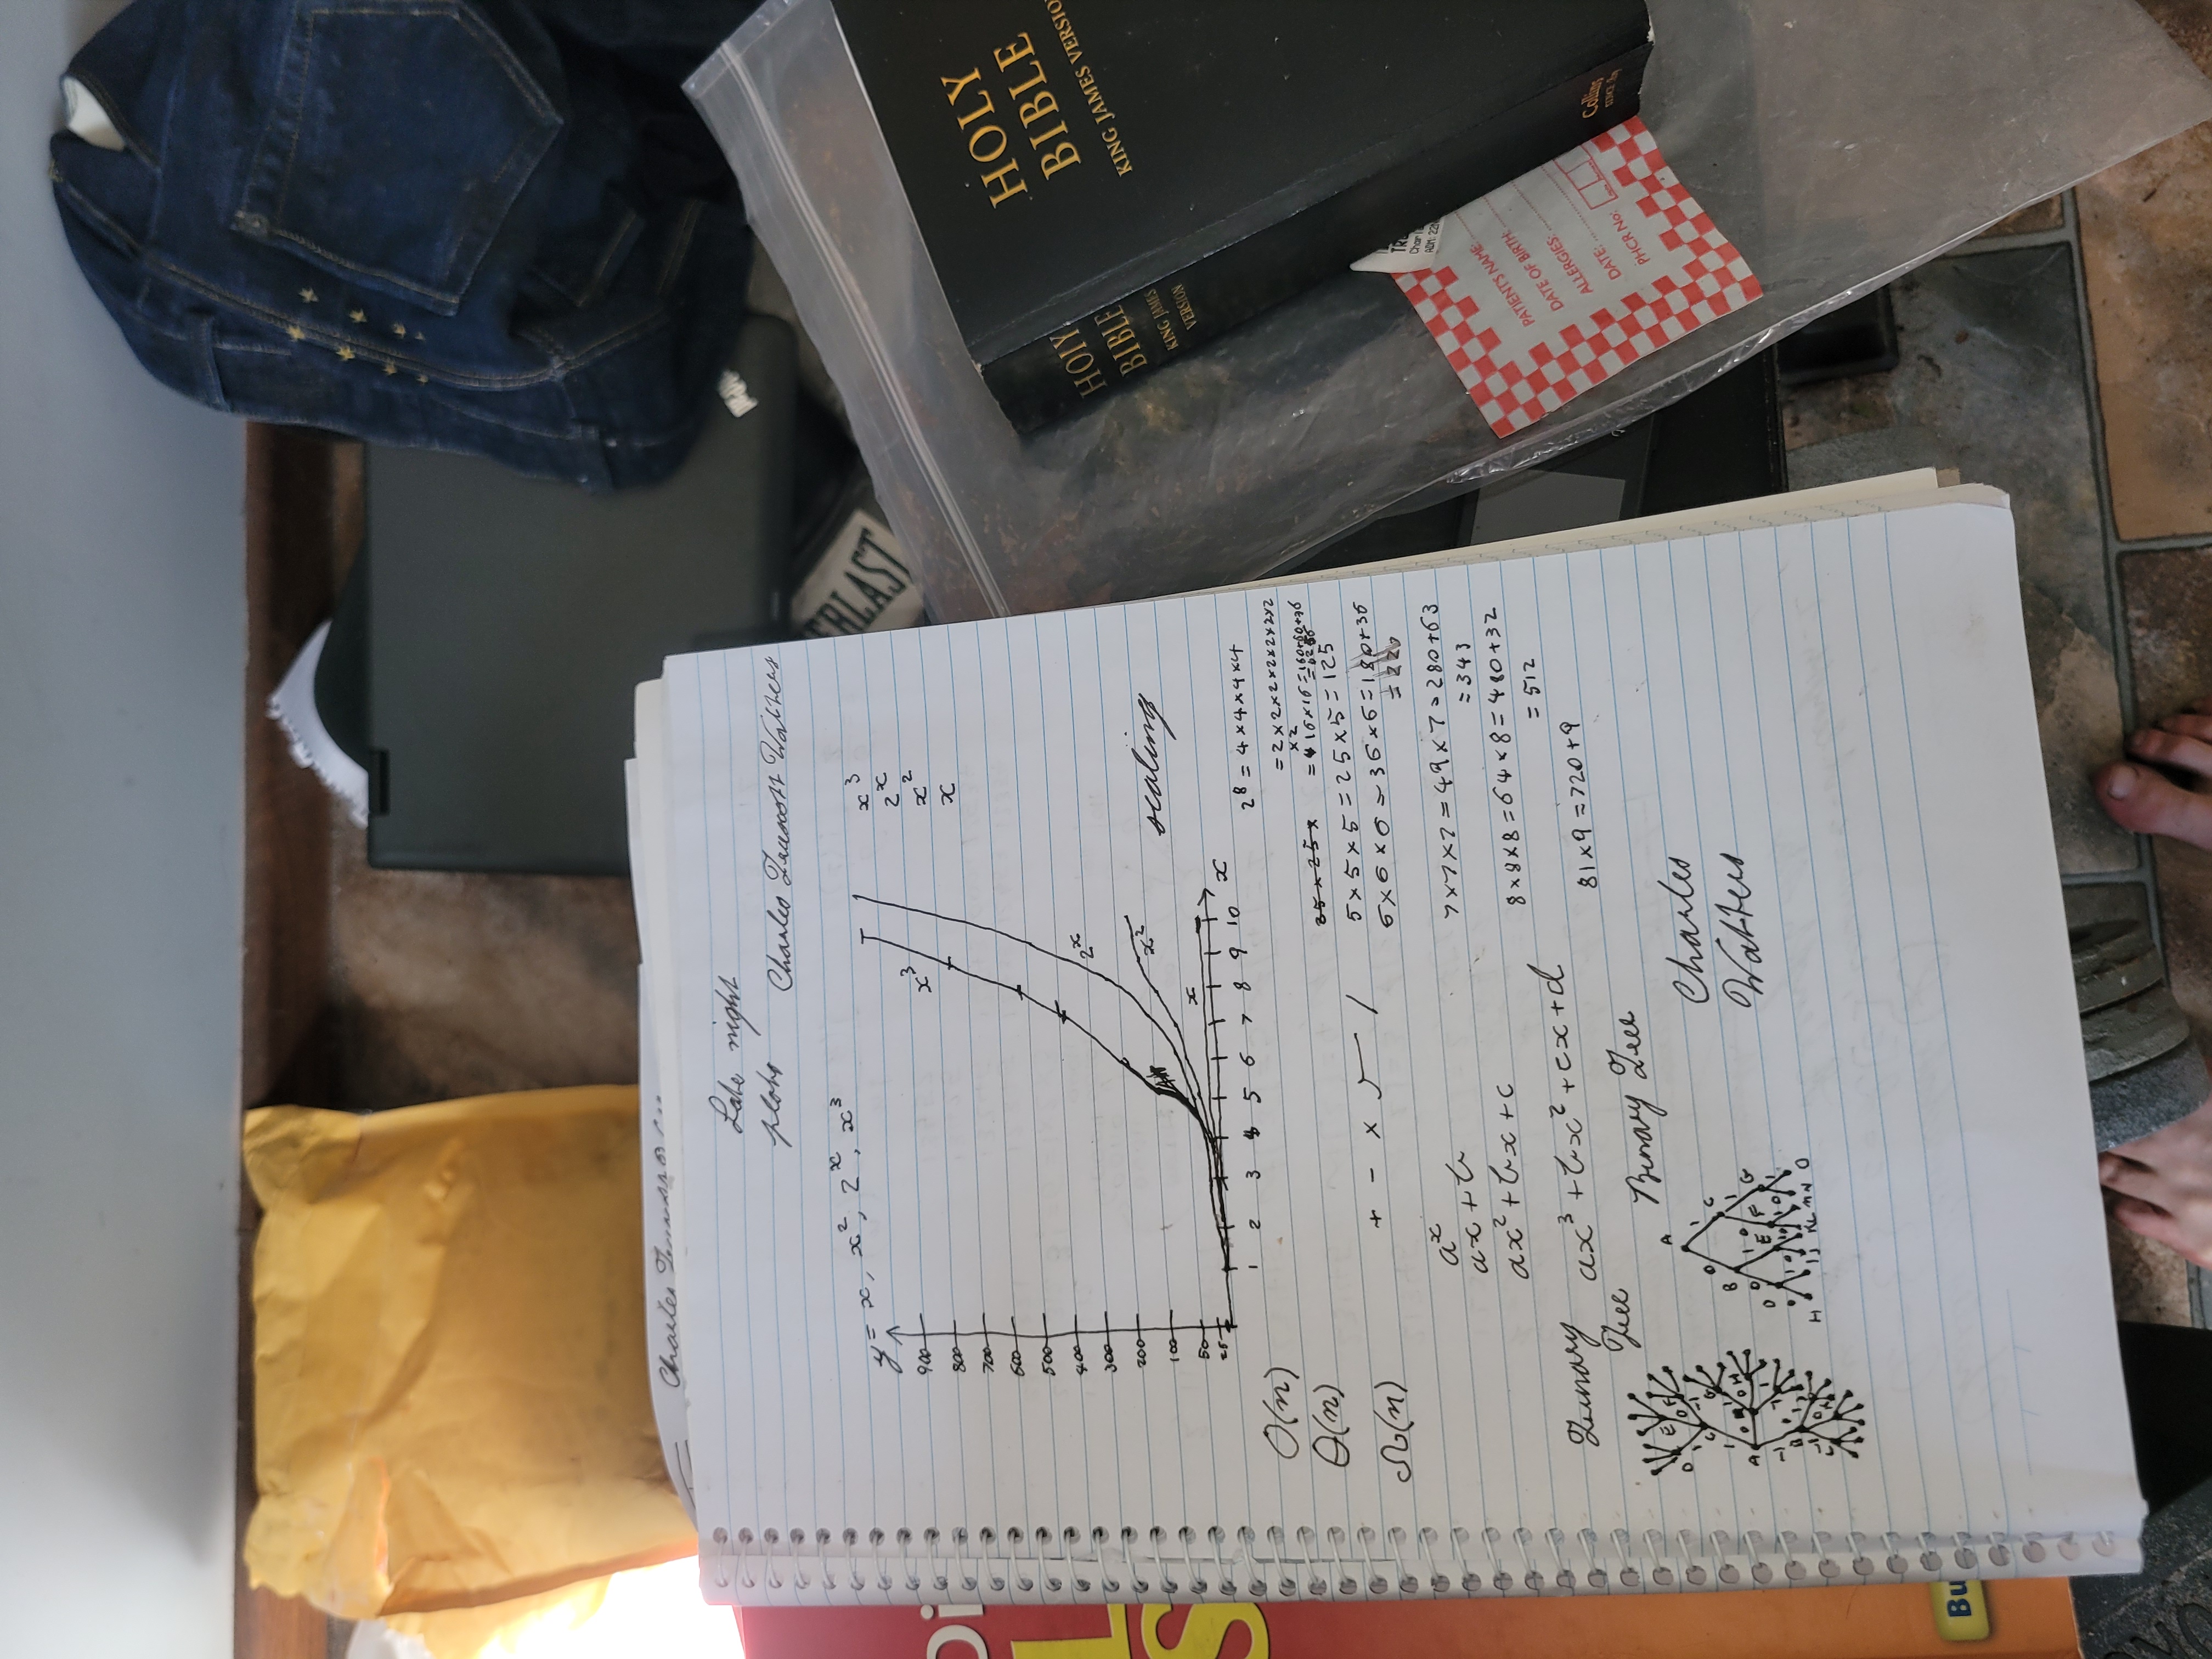 Late night
plots
Charles Truscott Watters
y = x, x², 2ˣ, x³
900
800
700
600
500
400
300
200
100
50
25
1 2 3 4 5 6 7 8 9 10
x
x³
2ˣ
x²
x
x³
2ˣ
x²
x
scaling
O(n)
Θ(n)
Ω(n)
+ - × /
aˣ
ax + b
ax² + bx + c
ax³ + bx² + cx + d
2⁸ = 4 × 4 × 4 × 4
= 2 × 2 × 2 × 2 × 2 × 2 × 2
× 2
5 × 5 × 5 = 25 × 5 = 125
6 × 6 × 6 = 36 × 6 = 180 + 36
7 × 7 × 7 = 49 × 7 = 280 + 63
= 343
8 × 8 × 8 = 64 × 8 = 480 + 32
= 512
81 × 9 = 720 + 9
Tree
Binary Tree
A
B C
D E F G
H I J K L M N O
Charles
Watters
Charles
ERLAST
HOLY
BIBLE
KING JAMES
VERSION
HOLY
BIBLE
KING JAMES VERSIO
Collins
PATIENT'S NAME:
DATE OF BIRTH:
ALLERGIES:
DATE:
PHCR No:
Bu